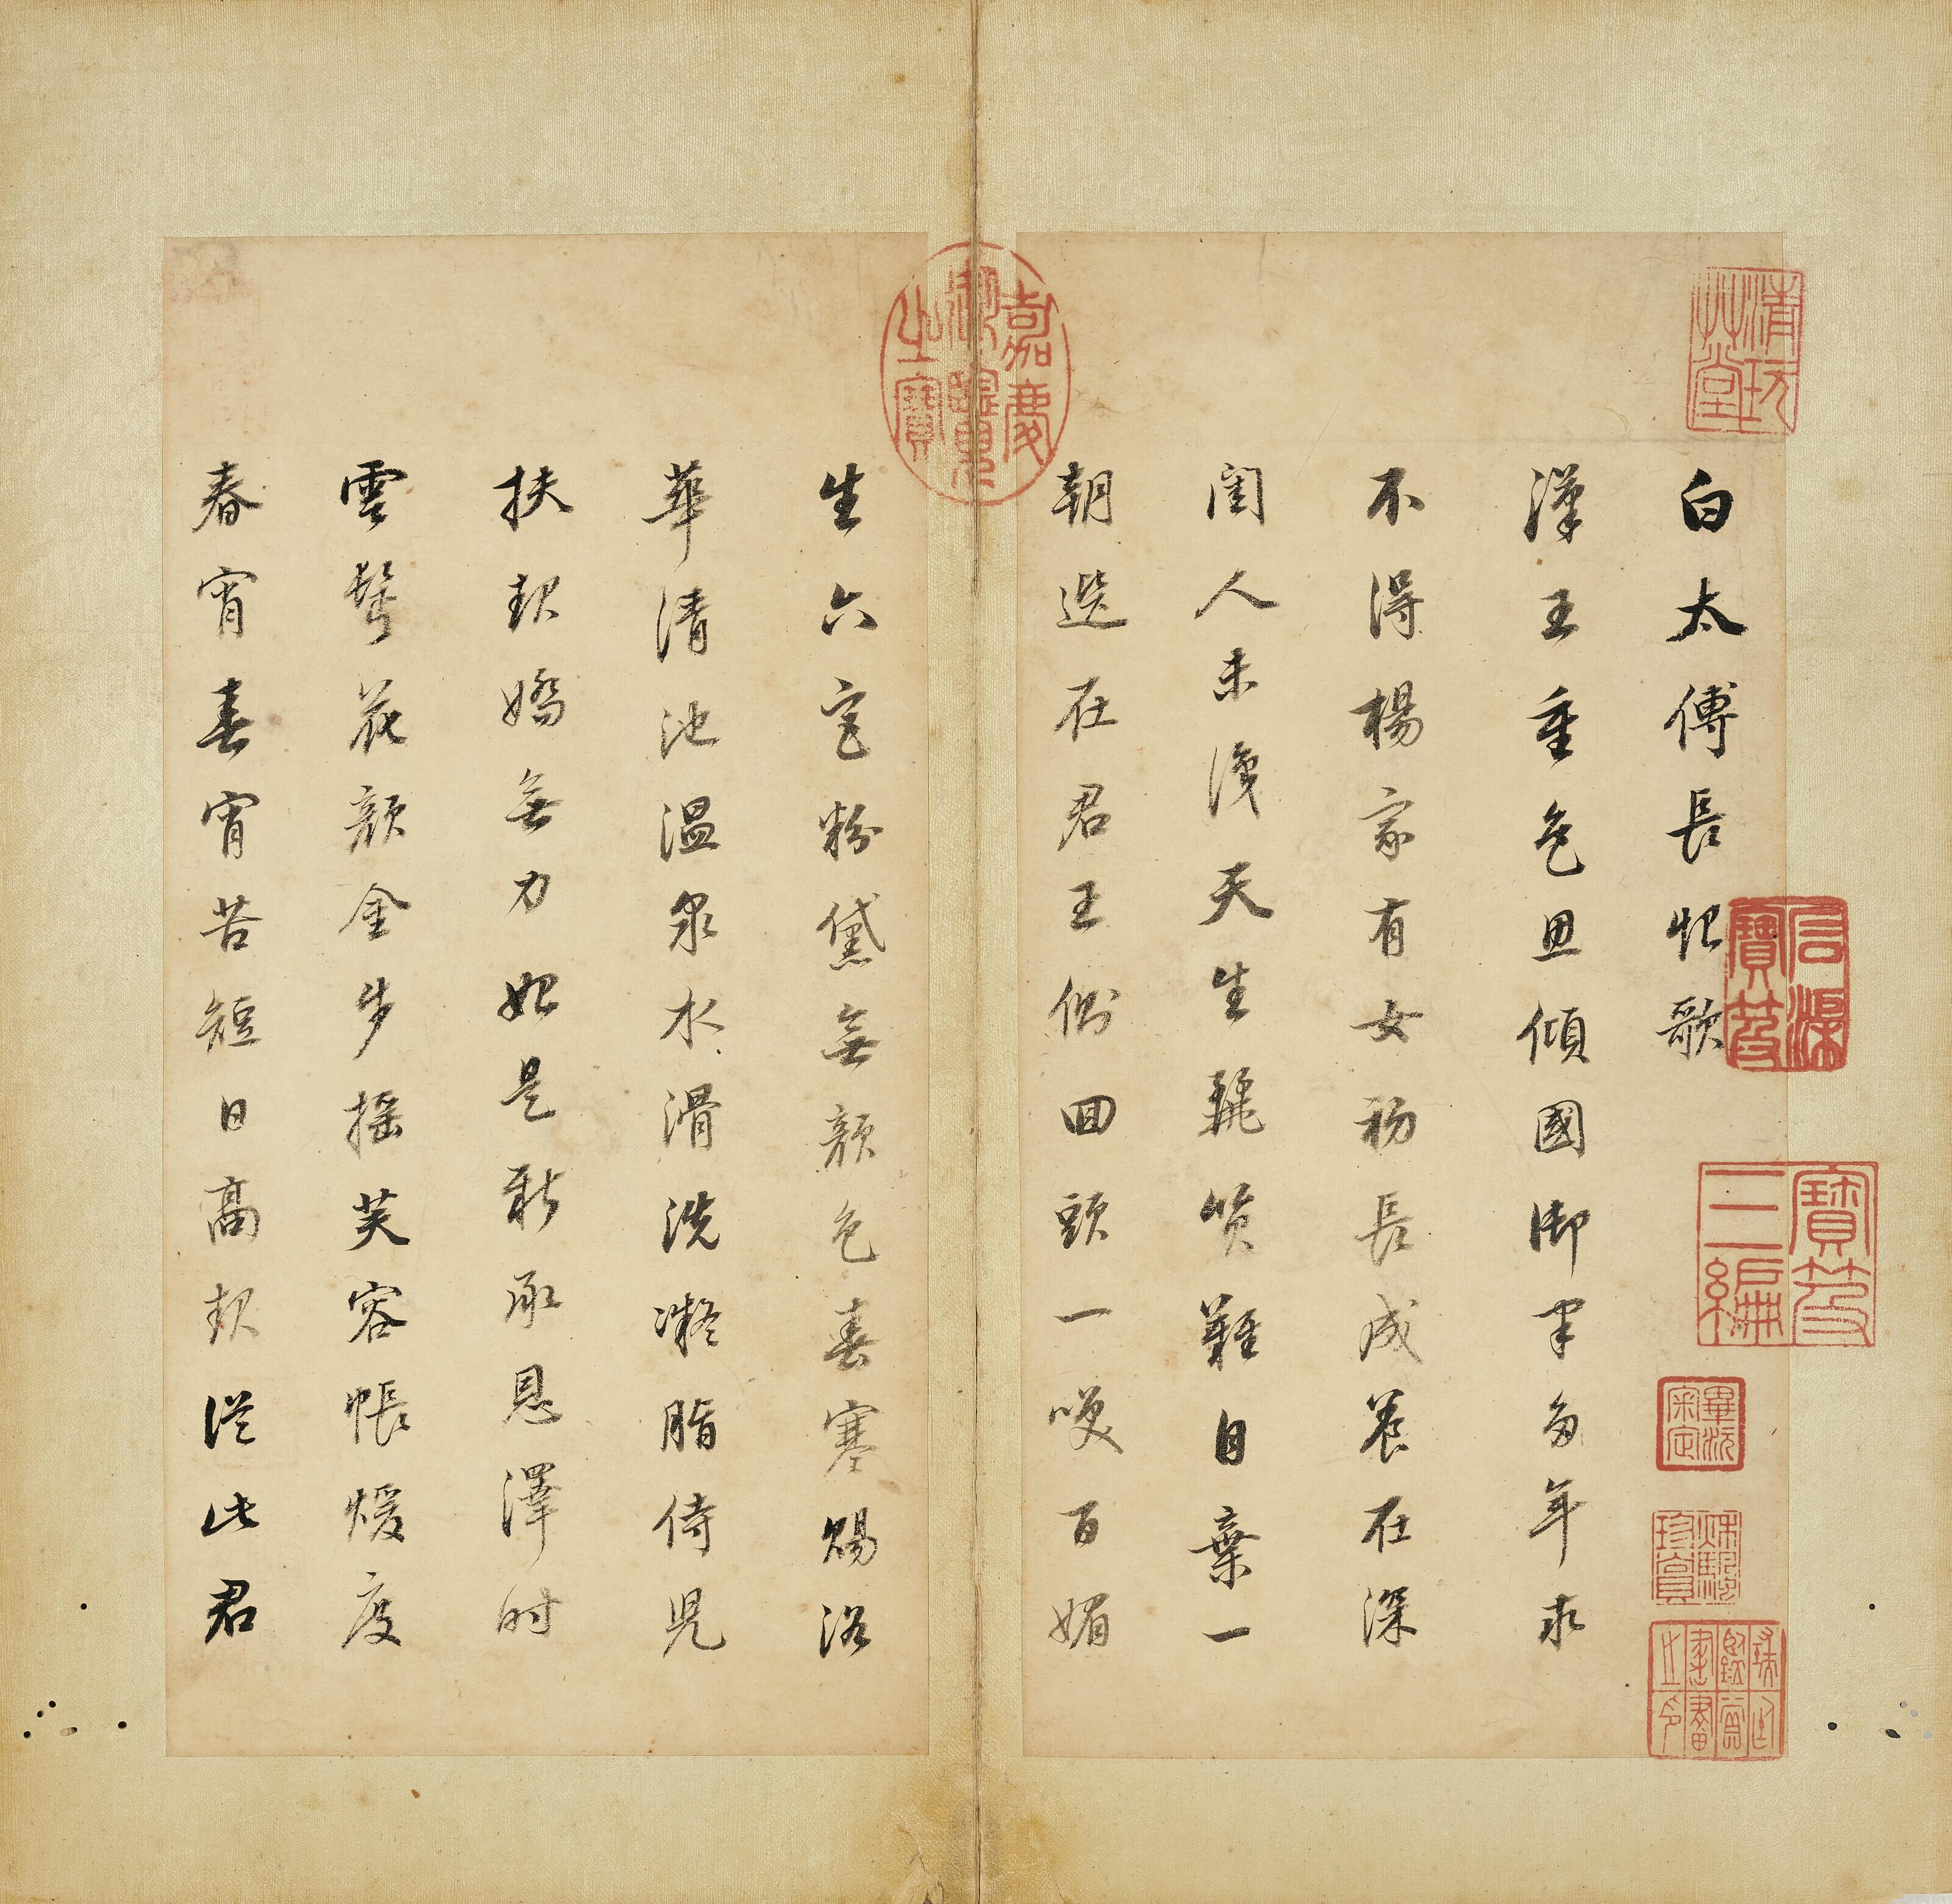 白太傅長恨歌
漢王重色思傾國御宇多年求
不得楊家有女初長成養在深
閨人未識天生麗質難自棄一
朝選在君王側囬頭一咲百媚
生六宮粉黛無顏色春寒賜浴
華清池溫泉水滑洗凝脂侍兒
扶起嬌無力始是新承恩澤時
雲鬢花顏金步搖芙容帳煖度
春宵春宵苦短日高起從此君
嘉慶御覽之寶
石渠寶笈
寶笈三編
畢沅審定
秋颿珍賞